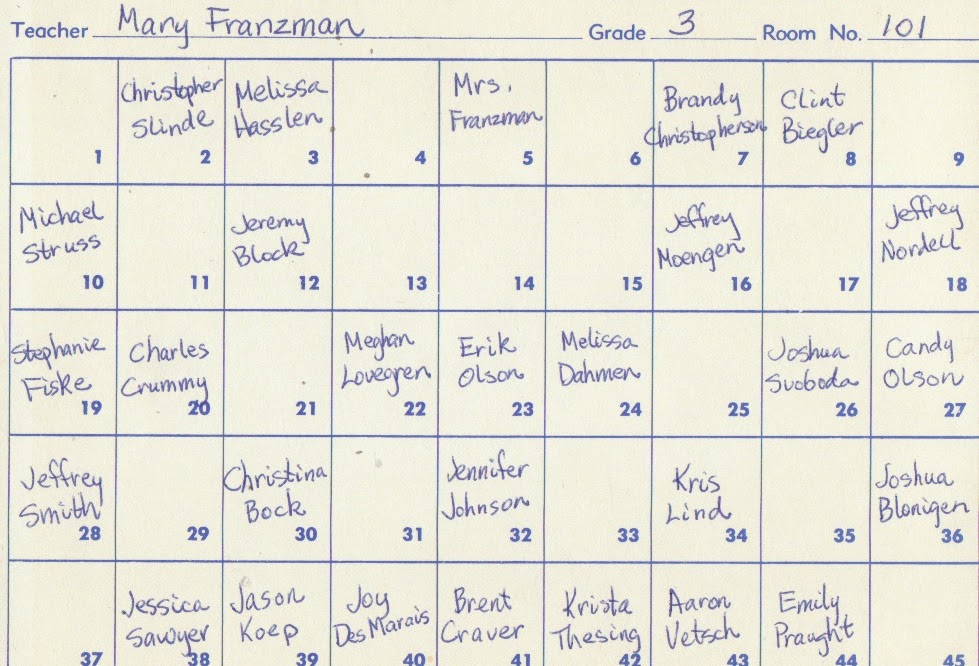 Teacher Mary Franzman Grade 3 Room No. 101
1
Christopher
Slinde
2
Melissa
Hasslen
3
4
Mrs.
Franzman
5
6
Brandy
Christopherson
7
Clint
Biegler
8
9
Michael
Struss
10
11
Jeremy
Block
12
13
14
15
Jeffrey
Moengen
16
17
Jeffrey
Nordell
18
Stephanie
Fiske
19
Charles
Crummy
20
21
Meghan
Lovegren
22
Erik
Olson
23
Melissa
Dahmen
24
25
Joshua
Svoboda
26
Candy
Olson
27
Jeffrey
Smith
28
29
Christina
Bock
30
31
Jennifer
Johnson
32
33
Kris
Lind
34
35
Joshua
Blonigen
36
37
Jessica
Sawyer
38
Jason
Koep
39
Joy
Des Marais
40
Brent
Craver
41
Krista
Thesing
42
Aaron
Vetsch
43
Emily
Praught
44
45